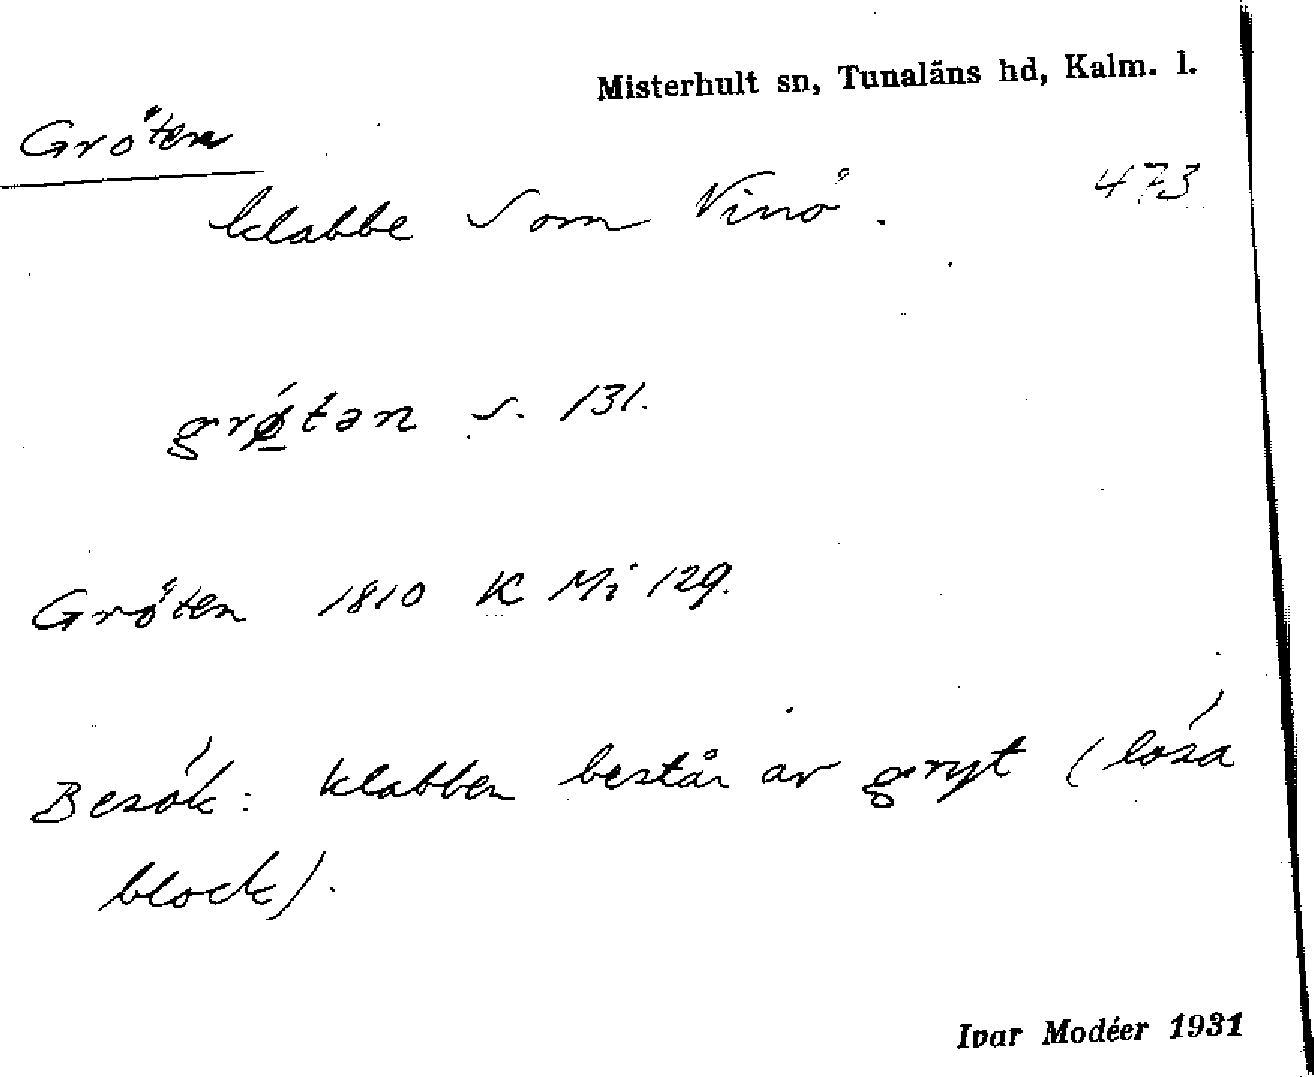 Misterhult sn, Tunaläns hd, Kalm. l.
Gröten
473
klabbe S om Vinö.
grǿtən s. 131.
Gröten 1810 K Mi 129.
Besök: klabben består av gryt (lösa
block).
Ivar Modéer 1931